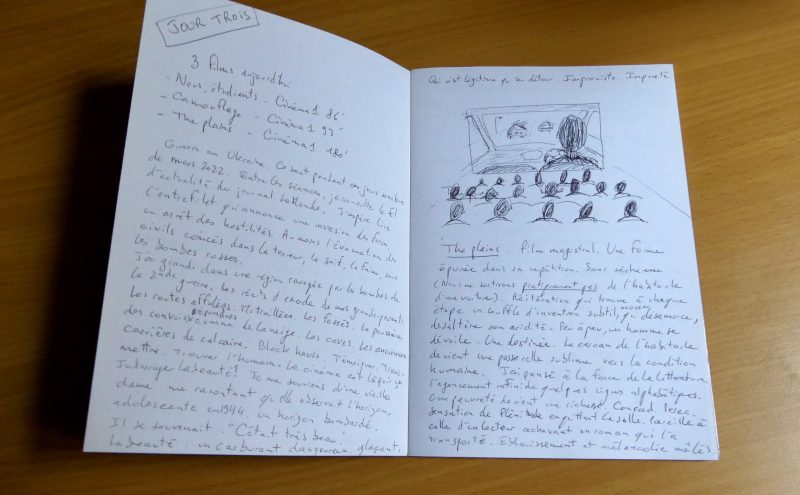 JOUR TROIS
3 films aujourd'hui
- Nous, étudiants. Cinéma 1 86'
- Camouflage - Cinéma 1 93'
- The plains - Cinéma 1 180'
Guerre en Ukraine. Ce sont pendant ces jours
de mars 2022. Entre les séances, je consulte le fil
d'actualité du journal J'espère lire
l'entrefilet qui annonce une des forces
un arrêt des hostilités. Au moins l'évacuation des
civils coincés dans la terreur, la soif, la faim, sous
les bombes russes.
J'ai grandi dans une région ravagée par les bombes de
la 2nde guerre. Les récits d'exode de mes grands-parents
les routes affolées. Mitraillées. Les fossés. La poussière
des convois répandues comme de la neige. Les caves. Les anciennes
carrières de calcaire. Block hauss. Témoigner. Trans-
mettre. Trouver l'humain. Le cinéma est là pour ça
Interroger la beauté? Je me souviens d'une vieille
dame me racontant qu'elle observait l'horizon
adolescente en 1944. Un horizon bombardé.
Il se souvenait. "C'était très beau." glaçant.
La beauté : un carburant dangereux.
Qui n'est légitime qu'en détour. Improviste. Impureté
The plains. Film magistral. Une forme
épurée dans sa répétition. Sans sécheresse
(Nous ne sortirons pratiquement pas de l'habitacle
d'une voiture). Réitération qui trouve à chaque
étape un souffle d'invention subtil, qui désamorce,
désaltère son aridité. Peu à peu, un homme se
dévoile. Une destinée. Le carcan de l'habitacle
devient une passerelle sublime vers la condition
humaine. J'ai pensé à la force de la littérature
l'agencement infini de quelques signes alphabétiques.
Une pauvreté devient une richesse. Conrad. Perec.
Sensation de Plénitude en quittant la salle. Pareille à
celle d'un lecteur achevant un roman qui l'a
transporté. Éblouissement et mélancolie mêlés